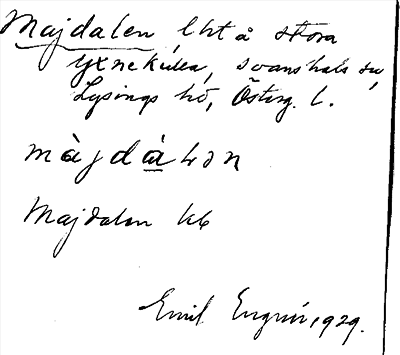 Majdalen lht å stora
Yxnekulla, svanshals sn,
Lysings hd, Österg. l.
màjdàlən
Majdalen kb
Emil Engrin 1929.